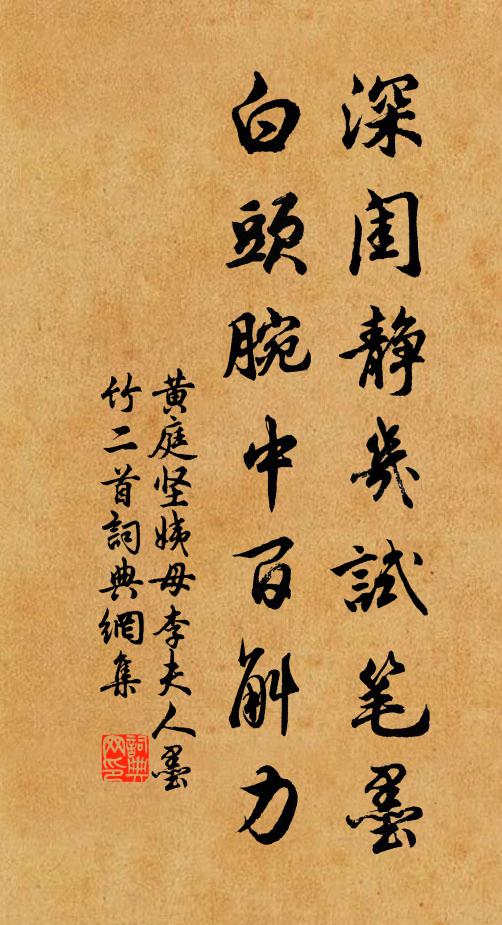 深闺静几試笔墨
白頭腕中百斛力
黄庭坚姨母李夫人墨
竹二首詞典網集
詞典
网印